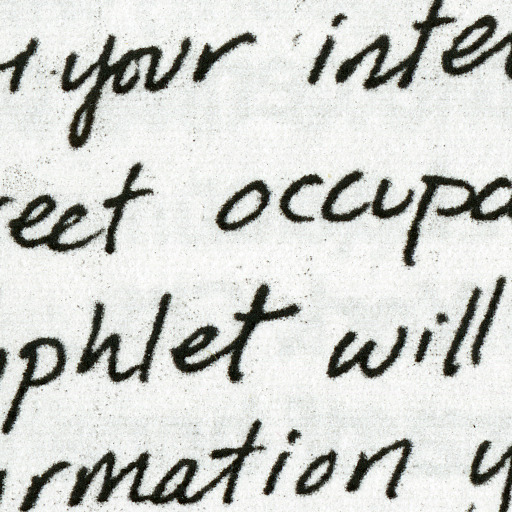 your inte
reet occupa
phlet will
rmation y